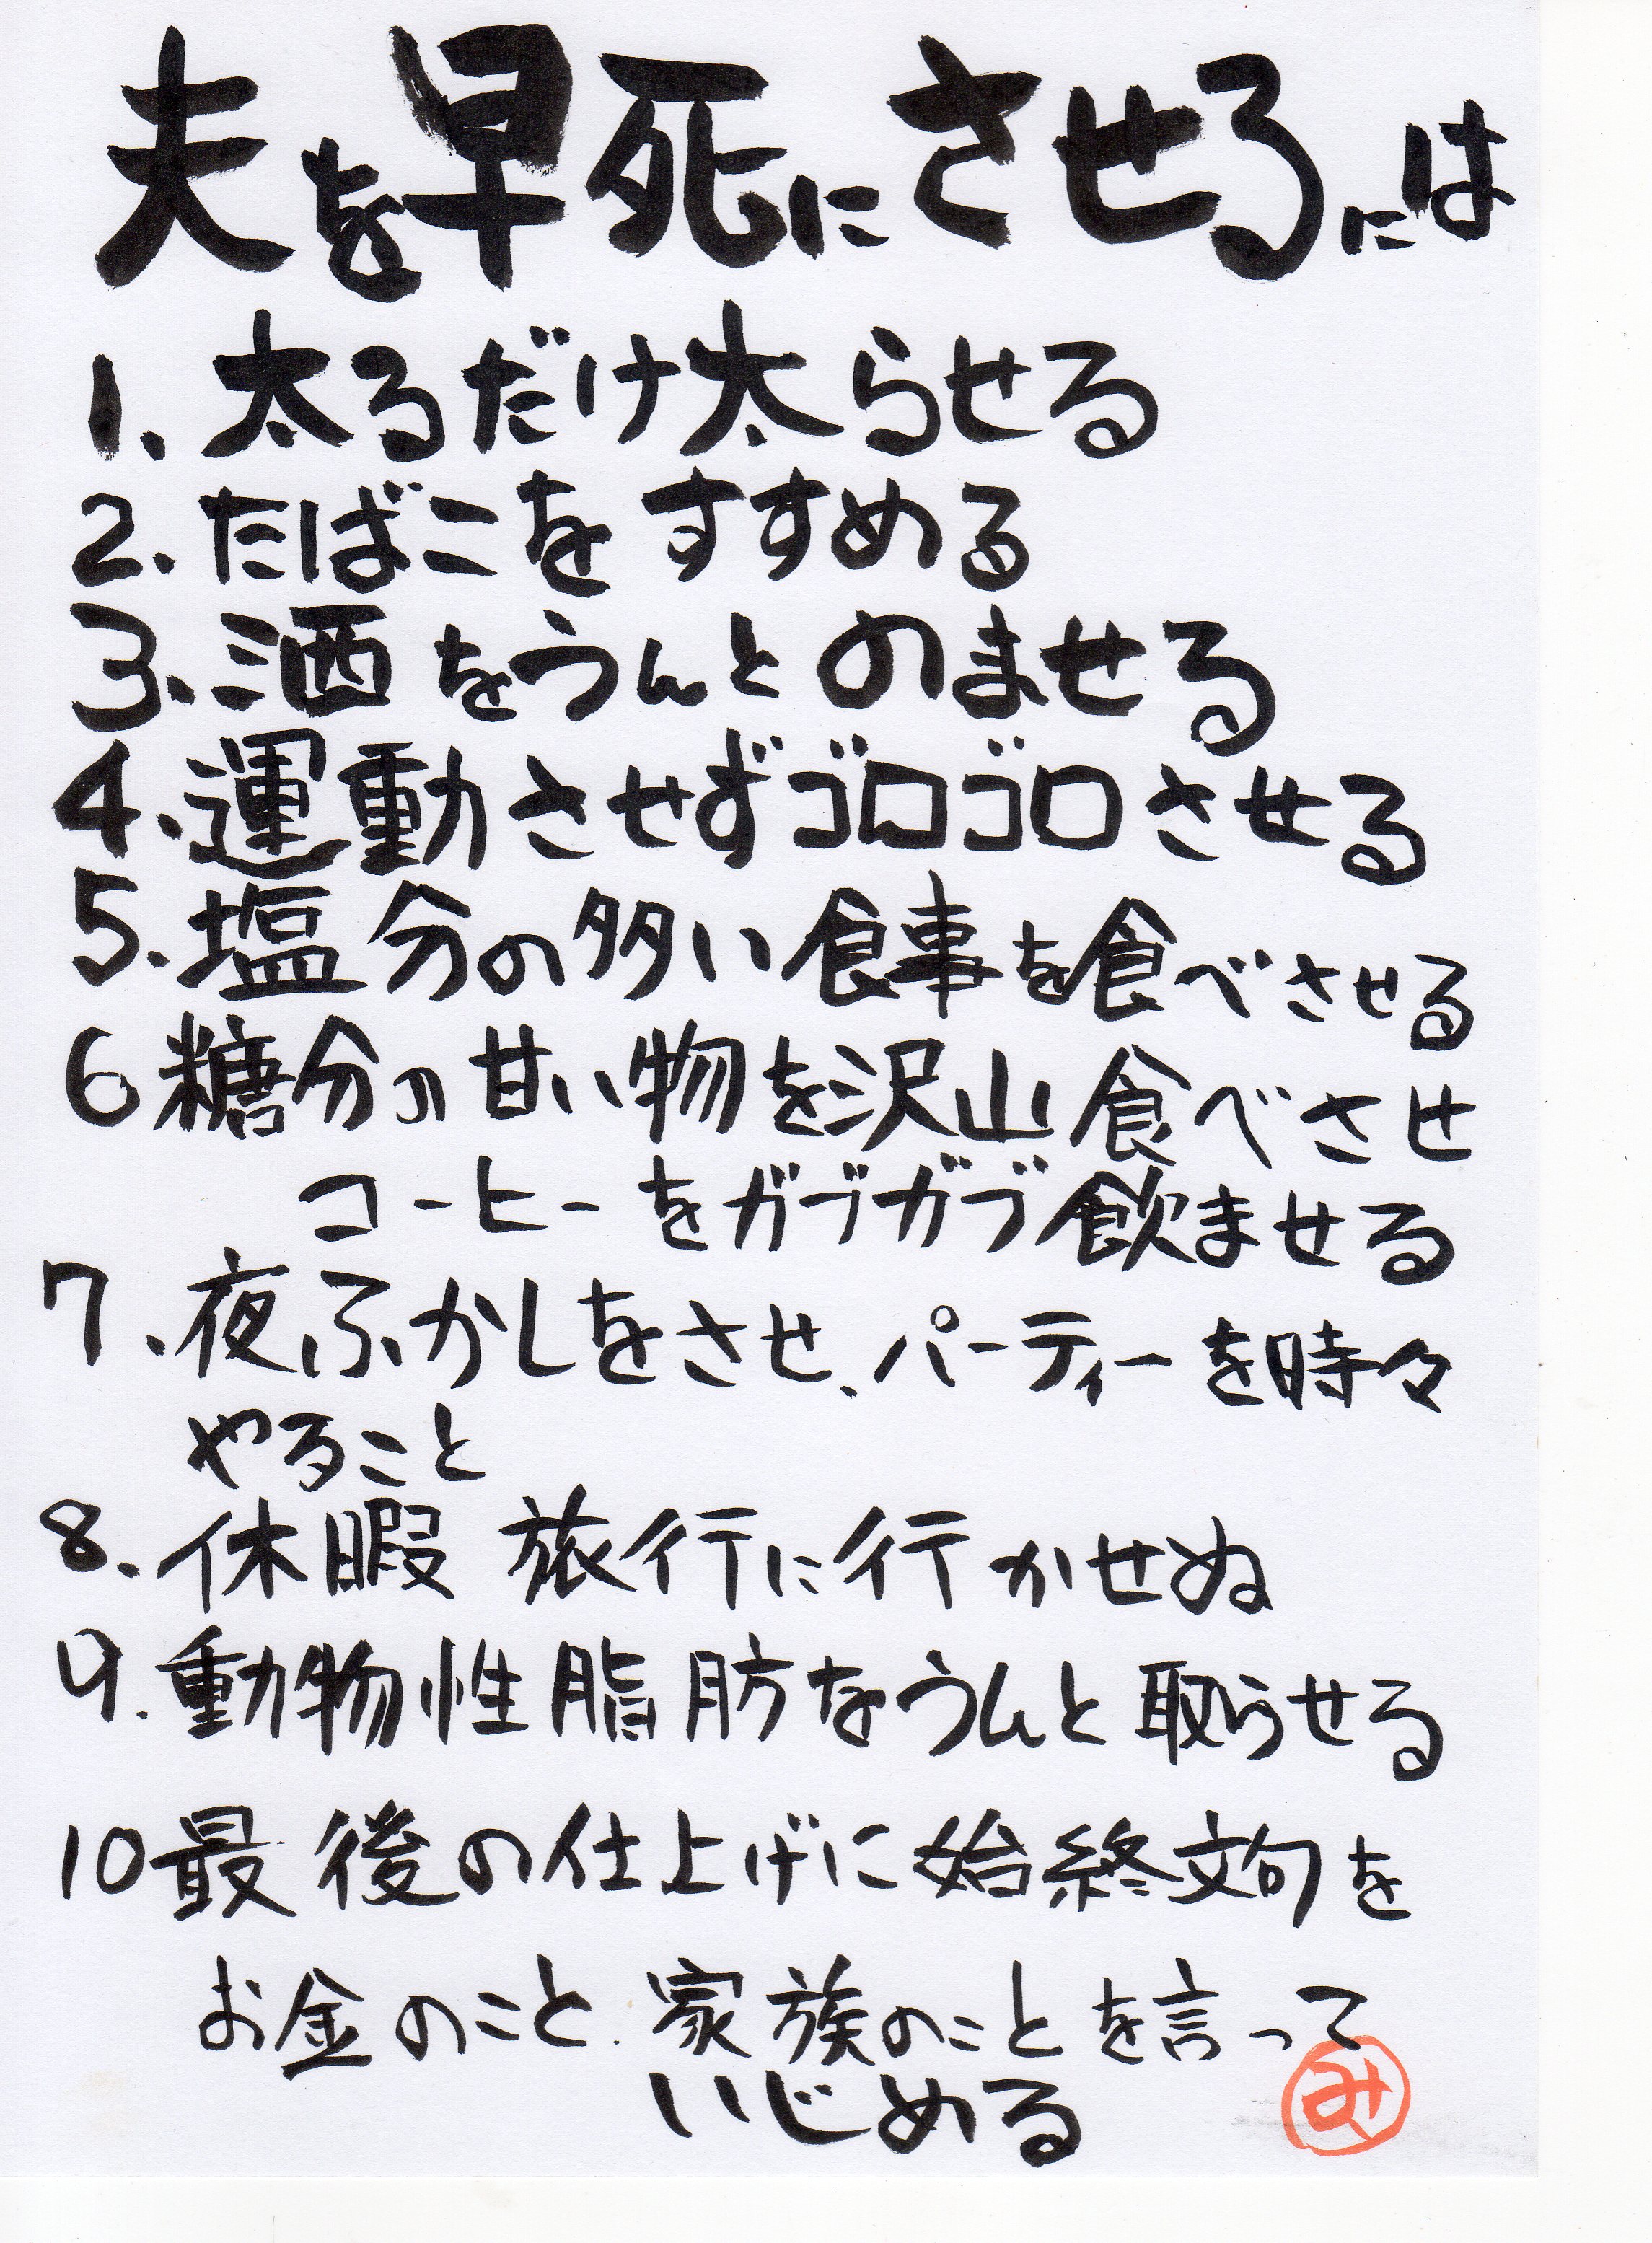 夫を早死にさせるには
1、太るだけ太らせる
2.たばこをすすめる
3、酒をうんとのませる
4、運動させずゴロゴロさせる
5.塩分の多い食事を食べさせる
6糖分の甘い物を沢山食べさせ
コーヒーをガブガブ飲ませる
7、夜ふかしをさせ、パーティーを時々
やること
8.休暇 旅行に行かせぬ
9.動物性脂肪をうんと取らせる
10最後の仕上げに始終文句を
お金のこと.家族のことを言って
いじめる
み